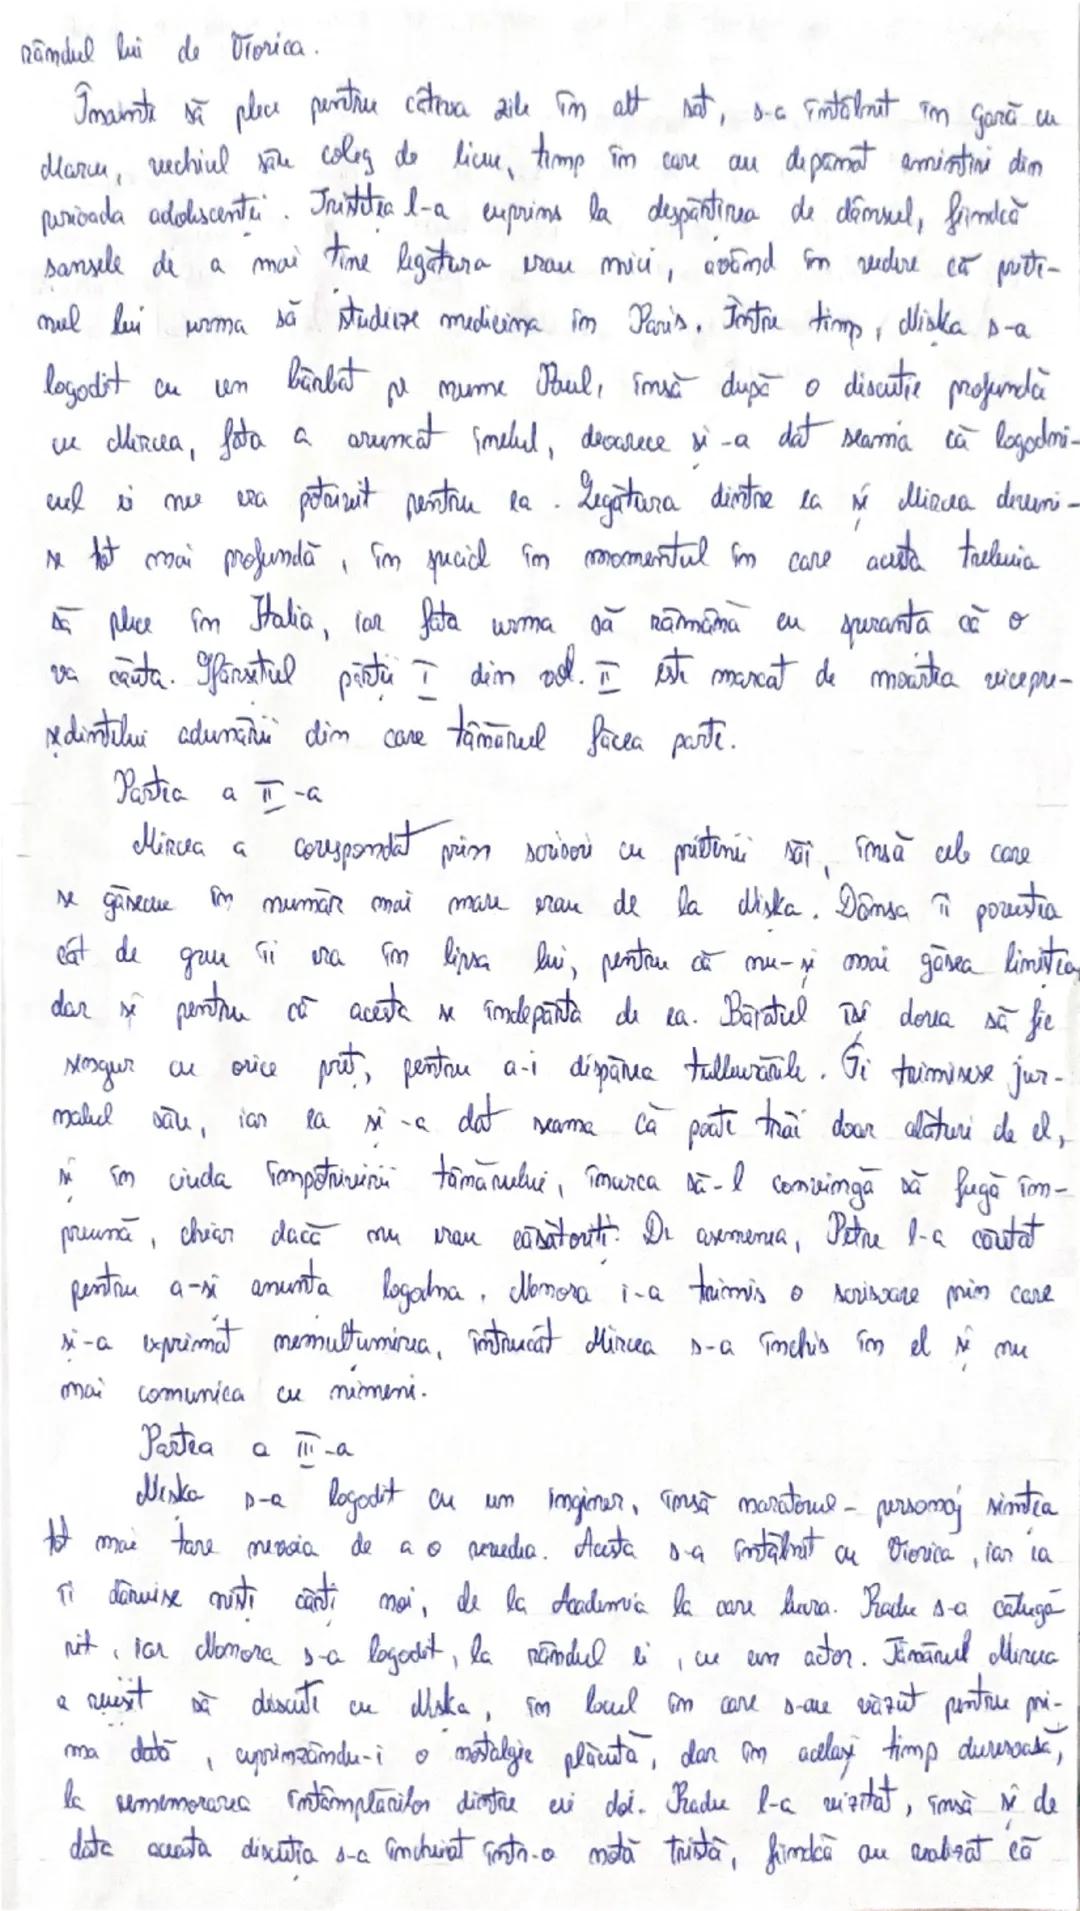 rândul lui de Viorica.
Înainte să plece pentru câteva zile în alt sat, s-a întâlnit în gară cu
Marcu, vechiul său coleg de liceu, timp în care au depănat amintiri din
perioada adolescenței. Tristețea l-a cuprins la despărțirea de dânsul, fiindcă
șansele de a mai ține legătura erau mici, având în vedere că priete-
nul lui urma să studieze medicina în Paris. Între timp, Niska s-a
logodit cu un bărbat pe nume Paul, însă după o discuție profundă
cu Mircea, fata a aruncat inelul, deoarece și-a dat seama că logodni-
cul ei nu era potrivit pentru ea. Legătura dintre ea și Mircea deveni-
se tot mai profundă, în special în momentul în care acesta trebuia
să plece în Italia, iar fata urma să rămână cu speranța că o
va căuta. Sfârșitul părții I din vol. II este marcat de moartea vicepre-
ședintelui adunării din care tânărul făcea parte.
Partea a II-a
Mircea a corespondat prin scrisori cu prietenii săi, însă cele care
se găseau în număr mai mare erau de la Niska. Dânsa îi povestea
cât de greu îi era în lipsa lui, pentru că nu-și mai găsea liniștea,
dar și pentru că acesta se îndepărta de ea. Băiatul își dorea să fie
singur cu orice preț, pentru a-i dispărea tulburările. Îi trimisese jur-
nalul său, iar ea și-a dat seama că poate trăi doar alături de el,
și în ciuda împotrivirii tânărului, încerca să-l convingă să fugă îm-
preună, chiar dacă nu erau căsătoriți. De asemenea, Petre l-a căutat
pentru a-și anunța logodna. Nonora i-a trimis o scrisoare prin care
și-a exprimat nemulțumirea, întrucât Mircea s-a închis în el și nu
mai comunica cu nimeni.
Partea a III-a
Niska s-a logodit cu un inginer, însă naratorul-personaj simțea
tot mai tare nevoia de a o revedea. Acesta s-a întâlnit cu Viorica, iar ea
îi dăruise niște cărți noi, de la Academia la care lucra. Radu s-a călugă-
rit, iar Nonora s-a logodit, la rândul ei, cu un actor. Tânărul Mircea
a reușit să discute cu Niska, în locul în care s-au văzut pentru pri-
ma dată, cuprinzându-i o nostalgie plăcută, dar în același timp dureroasă,
la rememorarea întâmplărilor dintre cei doi. Radu l-a vizitat, însă și de
data aceasta discuția s-a încheiat într-o notă tristă, fiindcă au realizat că